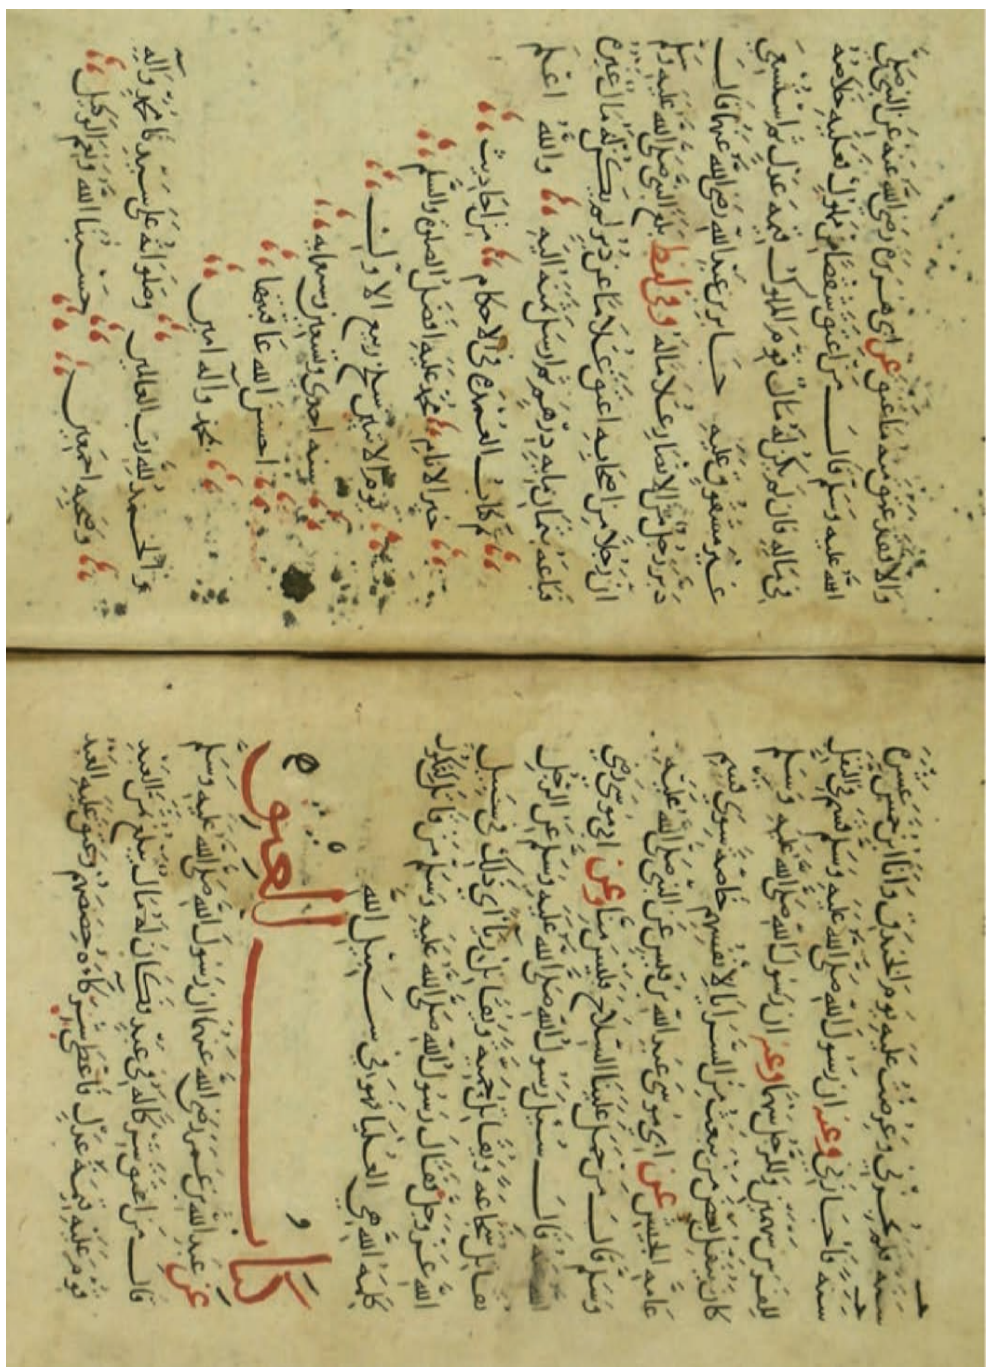 سنة فلم يجزني وعرضت عليه يوم الخندق وانا ابن خمس عشرة
سنة فاجازني وعنه ان رسول الله صلى الله عليه وسلم قسم في النفل
للفرس سهمين وللرجل سهما وعنه ان رسول الله صلى الله عليه وسلم
كان ينفل بعض من يبعث من السرايا لانفسهم خاصة سوى قسم
عامة الجيش عن ابي موسى عبد الله بن قيس عن النبي صلى الله عليه
وسلم قال من حمل علينا السلاح فليس منا وعن ابي موسى رضي
الله عنه قال سئل رسول الله صلى الله عليه وسلم عن الرجل
يقاتل شجاعه ويقاتل حمية ويقاتل ريا اي ذلك في سبيل
الله عز وجل فقال رسول الله صلى الله عليه وسلم من قاتل لتكون
كلمة الله هي العليا فهو في سبيل الله
كتاب العتق
عن عبد الله بن عمر رضي الله عنهما ان رسول الله صلى الله عليه وسلم
قال من اعتق شركا له في عبد فكان له مال يبلغ ثمن العبد
قوم عليه قيمة عدل فاعطى شركاه حصصهم وعتق عليه العبد
والا فقد عتق منه ما عتق عن ابي هريرة رضي الله عنه عن النبي صلى
الله عليه وسلم قال من اعتق شقصا من مملوك فعليه خلاصه
في ماله فان لم يكن له مال قوم المملوك قيمة عدل ثم استسعي
غير مشقوق عليه جابر بن عبد الله رضي الله عنهما قال
دبر رجل من الانصار غلاما له وفي لفظ بلغ النبي صلى الله عليه وسلم
ان رجلا من اصحابه اعتق غلاما عن دبر لم يكن له مال غيره
فباعه بثمان مايه درهم ثم ارسل ثمنه اليه والله اعلم
تم كتاب العمدة في الاحكام من احاديث
خير الانام محمد عليه افضل الصلوة والسلم
يوم الاثنين سلخ ربيع الاول
سنه احدى وتسعين وسبعمايه
احسن الله عاقبتها
بمحمد واله امين
والحمد لله رب العالمين وصلواته على سيدنا محمد وآله
وصحبه اجمعين حسبنا الله ونعم الوكيل